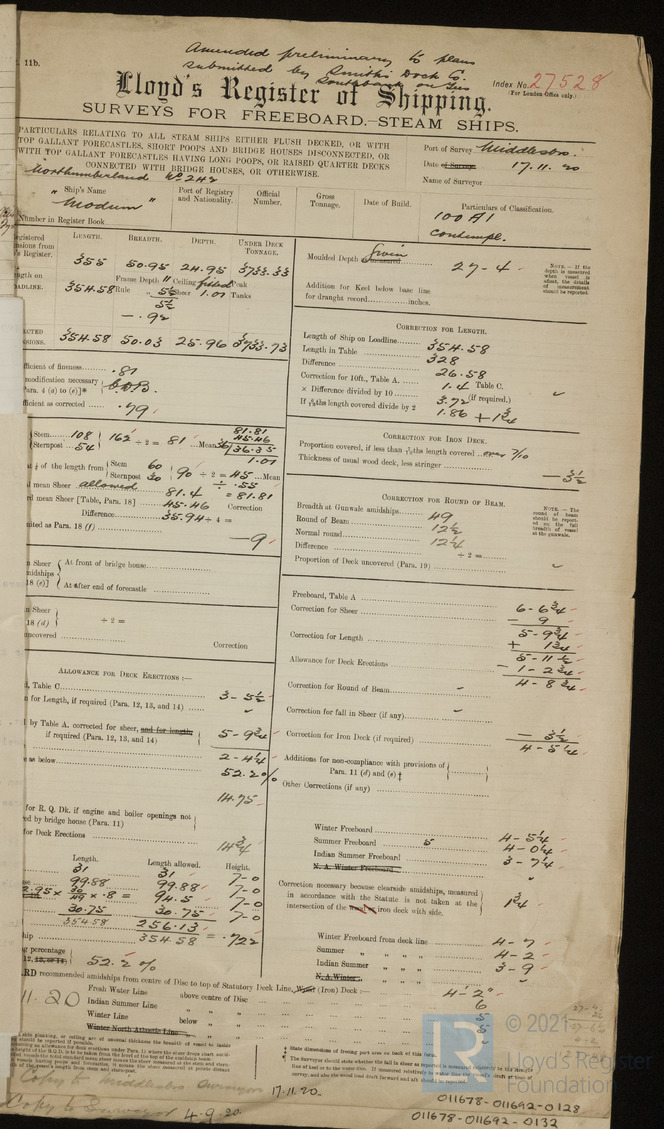 Amended preliminary to plans
submitted by Smiths Dock Co.
Southbank on Tees
11b.
Index No. 27528
(For London Office only.)
Lloyd's Register of Shipping.
SURVEYS FOR FREEBOARD.—STEAM SHIPS.
PARTICULARS RELATING TO ALL STEAM SHIPS EITHER FLUSH DECKED, OR WITH
TOP GALLANT FORECASTLES, SHORT POOPS AND BRIDGE HOUSES DISCONNECTED, OR
WITH TOP GALLANT FORECASTLES HAVING LONG POOPS, OR RAISED QUARTER DECKS
CONNECTED WITH BRIDGE HOUSES, OR OTHERWISE.
Port of Survey Middlesbro.
Date of Survey 17.11.20
Name of Surveyor
Northumberland No 242
Ship's Name
"Modum"
Port of Registry and Nationality.
Official Number.
Gross Tonnage.
Date of Build.
Particulars of Classification.
100 A1
contempl.
Number in Register Book
LENGTH. BREADTH. DEPTH. UNDER DECK TONNAGE.
355 50.95 24.95 3733.33
354.58 Rule Frame Depth 11 Ceiling fitted Peak
5½ Sheer 1.01 Tanks
5½
— .92
354.58 50.03 25.96 3733.73
Coefficient of fineness .81
modification necessary
Para. 4 (a) to (e)]*
efficient as corrected .79
Stem 108
Sternpost 54
162 ÷ 2 = 81 Mean
81.81
45.46
36.35
1.01
at ⅛ of the length from Stem 60
Sternpost 30
90 ÷ 2 = 45 Mean
÷ .55
= 81.81
mean Sheer allowed 81.4
rd mean Sheer [Table, Para. 18] 45.46 Correction
Difference 35.94 ÷ 4 =
mited as Para. 18 (f) —9
At front of bridge house
At after end of forecastle
÷ 2 =
uncovered
Correction
ALLOWANCE FOR DECK ERECTIONS :—
Table C. 3 - 5½
for Length, if required (Para. 12, 13, and 14)
by Table A. corrected for sheer, and for length,
if required (Para. 12, 13, and 14) 5 - 9¾
2 - 4¼
as below 52.2%
14.75
for R. Q. Dk. if engine and boiler openings not
ed by bridge house (Para. 11)
for Deck Erections 14¾
Length. Length allowed. Height.
31 31 7-0
99.88 99.88 7-0
× .8 = 94.5 7-0
30.75 30.75 7-0
354.58 256.13
354.58 = .722
percentage 52.2%
Moulded Depth Given Measured 27 - 4
NOTE.—If the depth is measured when vessel is afloat, the details of measurement should be reported.
Addition for Keel below base line
for draught record inches.
CORRECTION FOR LENGTH.
Length of Ship on Loadline 354.58
Length in Table 328
Difference 26.58
Correction for 10ft., Table A. 1.4 Table C.
× Difference divided by 10 3.72 (if required.)
If ⁶⁄₁₀ths length covered divide by 2 1.86 + 1¾
CORRECTION FOR IRON DECK.
Proportion covered, if less than ⁷⁄₁₀ths length covered over 7/10
Thickness of usual wood deck, less stringer 3½
CORRECTION FOR ROUND OF BEAM.
Breadth at Gunwale amidships 49
Round of Beam 12½
Normal round 12¼
Difference ÷ 2 =
Proportion of Deck uncovered (Para. 19)
NOTE.—The round of beam should be reported on the full breadth of vessel at the gunwale.
Freeboard, Table A 6 - 6¾
Correction for Sheer — 9
5 - 9¾
Correction for Length + 1¾
5 - 11½
Allowance for Deck Erections — 1 - 2¾
4 - 8¾
Correction for Round of Beam
Correction for fall in Sheer (if any)
Correction for Iron Deck (if required) — 3½
4 - 5¼
Additions for non-compliance with provisions of
Para. 11 (d) and (e) †
Other Corrections (if any)
Winter Freeboard 4 - 5¼
Summer Freeboard 5 4 - 0¼
Indian Summer Freeboard 3 - 7¼
N. A. Winter Freeboard
Correction necessary because clearside amidships, measured
in accordance with the Statute is not taken at the
intersection of the wood or iron deck with side. 1¾
Winter Freeboard from deck line 4 - 7
Summer " " " 4 - 2
Indian Summer " " " 3 - 9
N. A. Winter " " "
recommended amidships from centre of Disc to top of Statutory Deck Line, Wood (Iron) Deck :— 4 - 2"
Fresh Water Line above centre of Disc 6
Indian Summer Line " " 5
Winter Line below " 5
Winter North Atlantic Line " "
11.20
‡ State dimensions of freeing port area on back of this form.
Copy to Middlesbro Surveyor 17.11.20.
Copy to Surveyor 4.9.20.
© 2021
LR
Lloyd's Register
Foundation
011678-011692-0128
011678-011692-0132